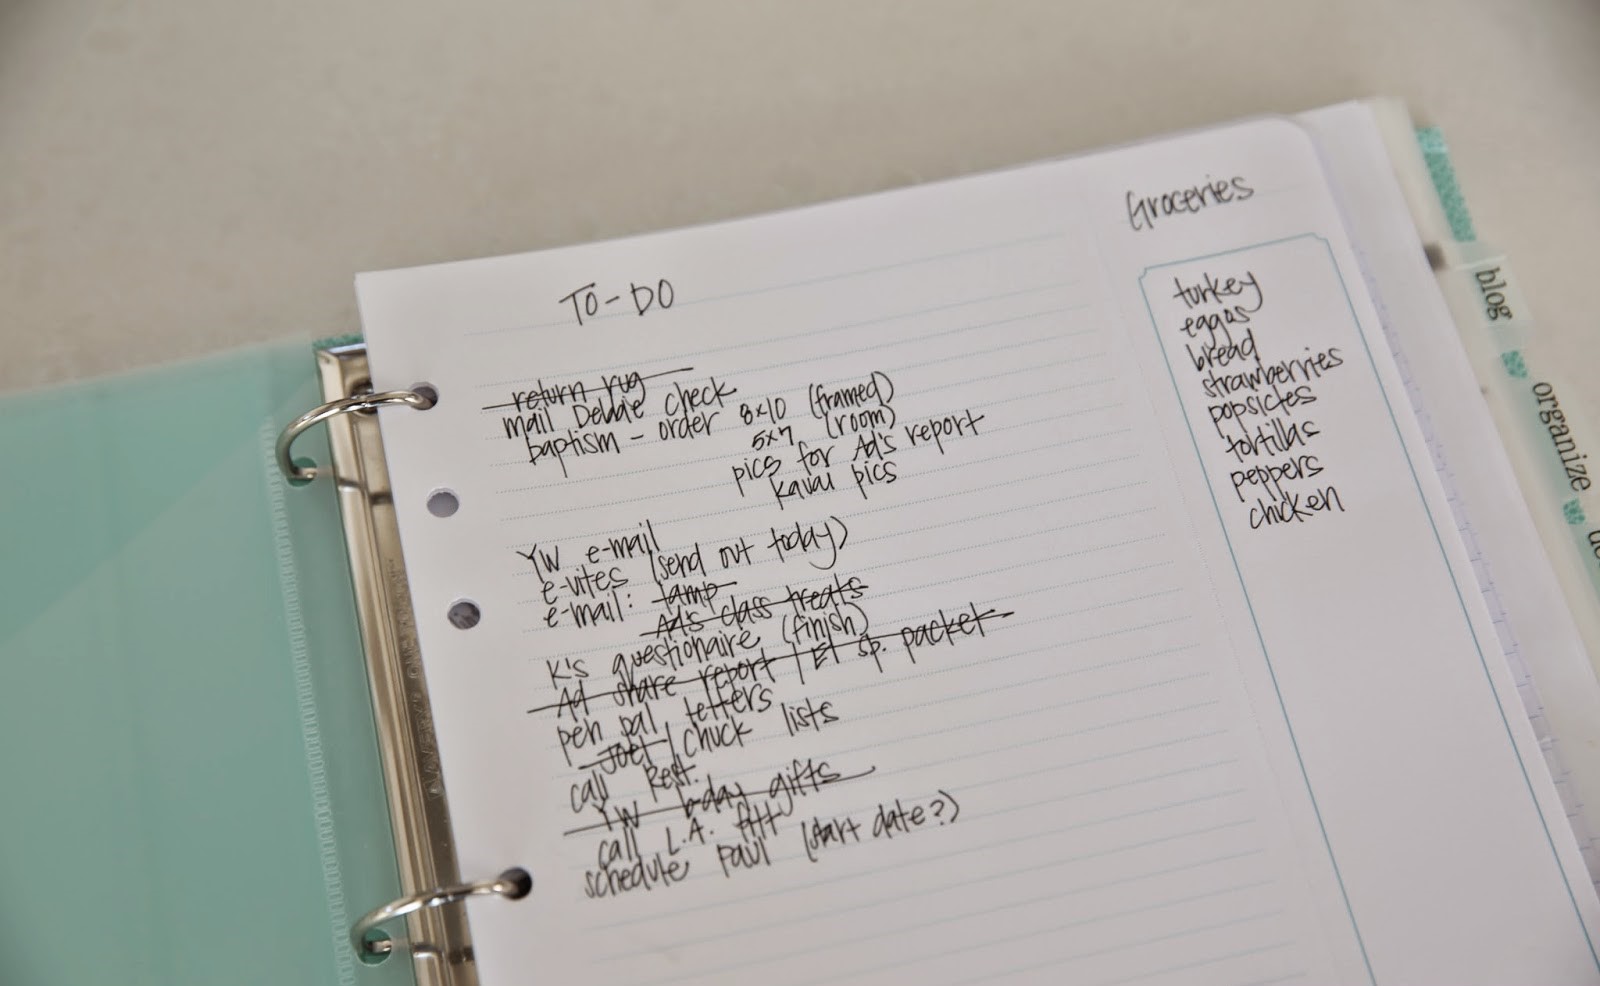 TO-DO
return rug
mail Debbie check
baptism - order 8x10 (framed)
5x7 (room)
pics for Ad's report
kauai pics
YW e-mail
e-vites (send out today)
e-mail: tamp
Ad's class treats
K's questionaire (finish)
Ad share report / El sp. packet
pen pal letters
Joel / Chuck lists
call Rest.
YW b-day gifts
call L.A. fitt
schedule Paul (start date?)
Groceries
turkey
eggos
bread
strawberries
popsicles
tortillas
peppers
chicken
blog
organize